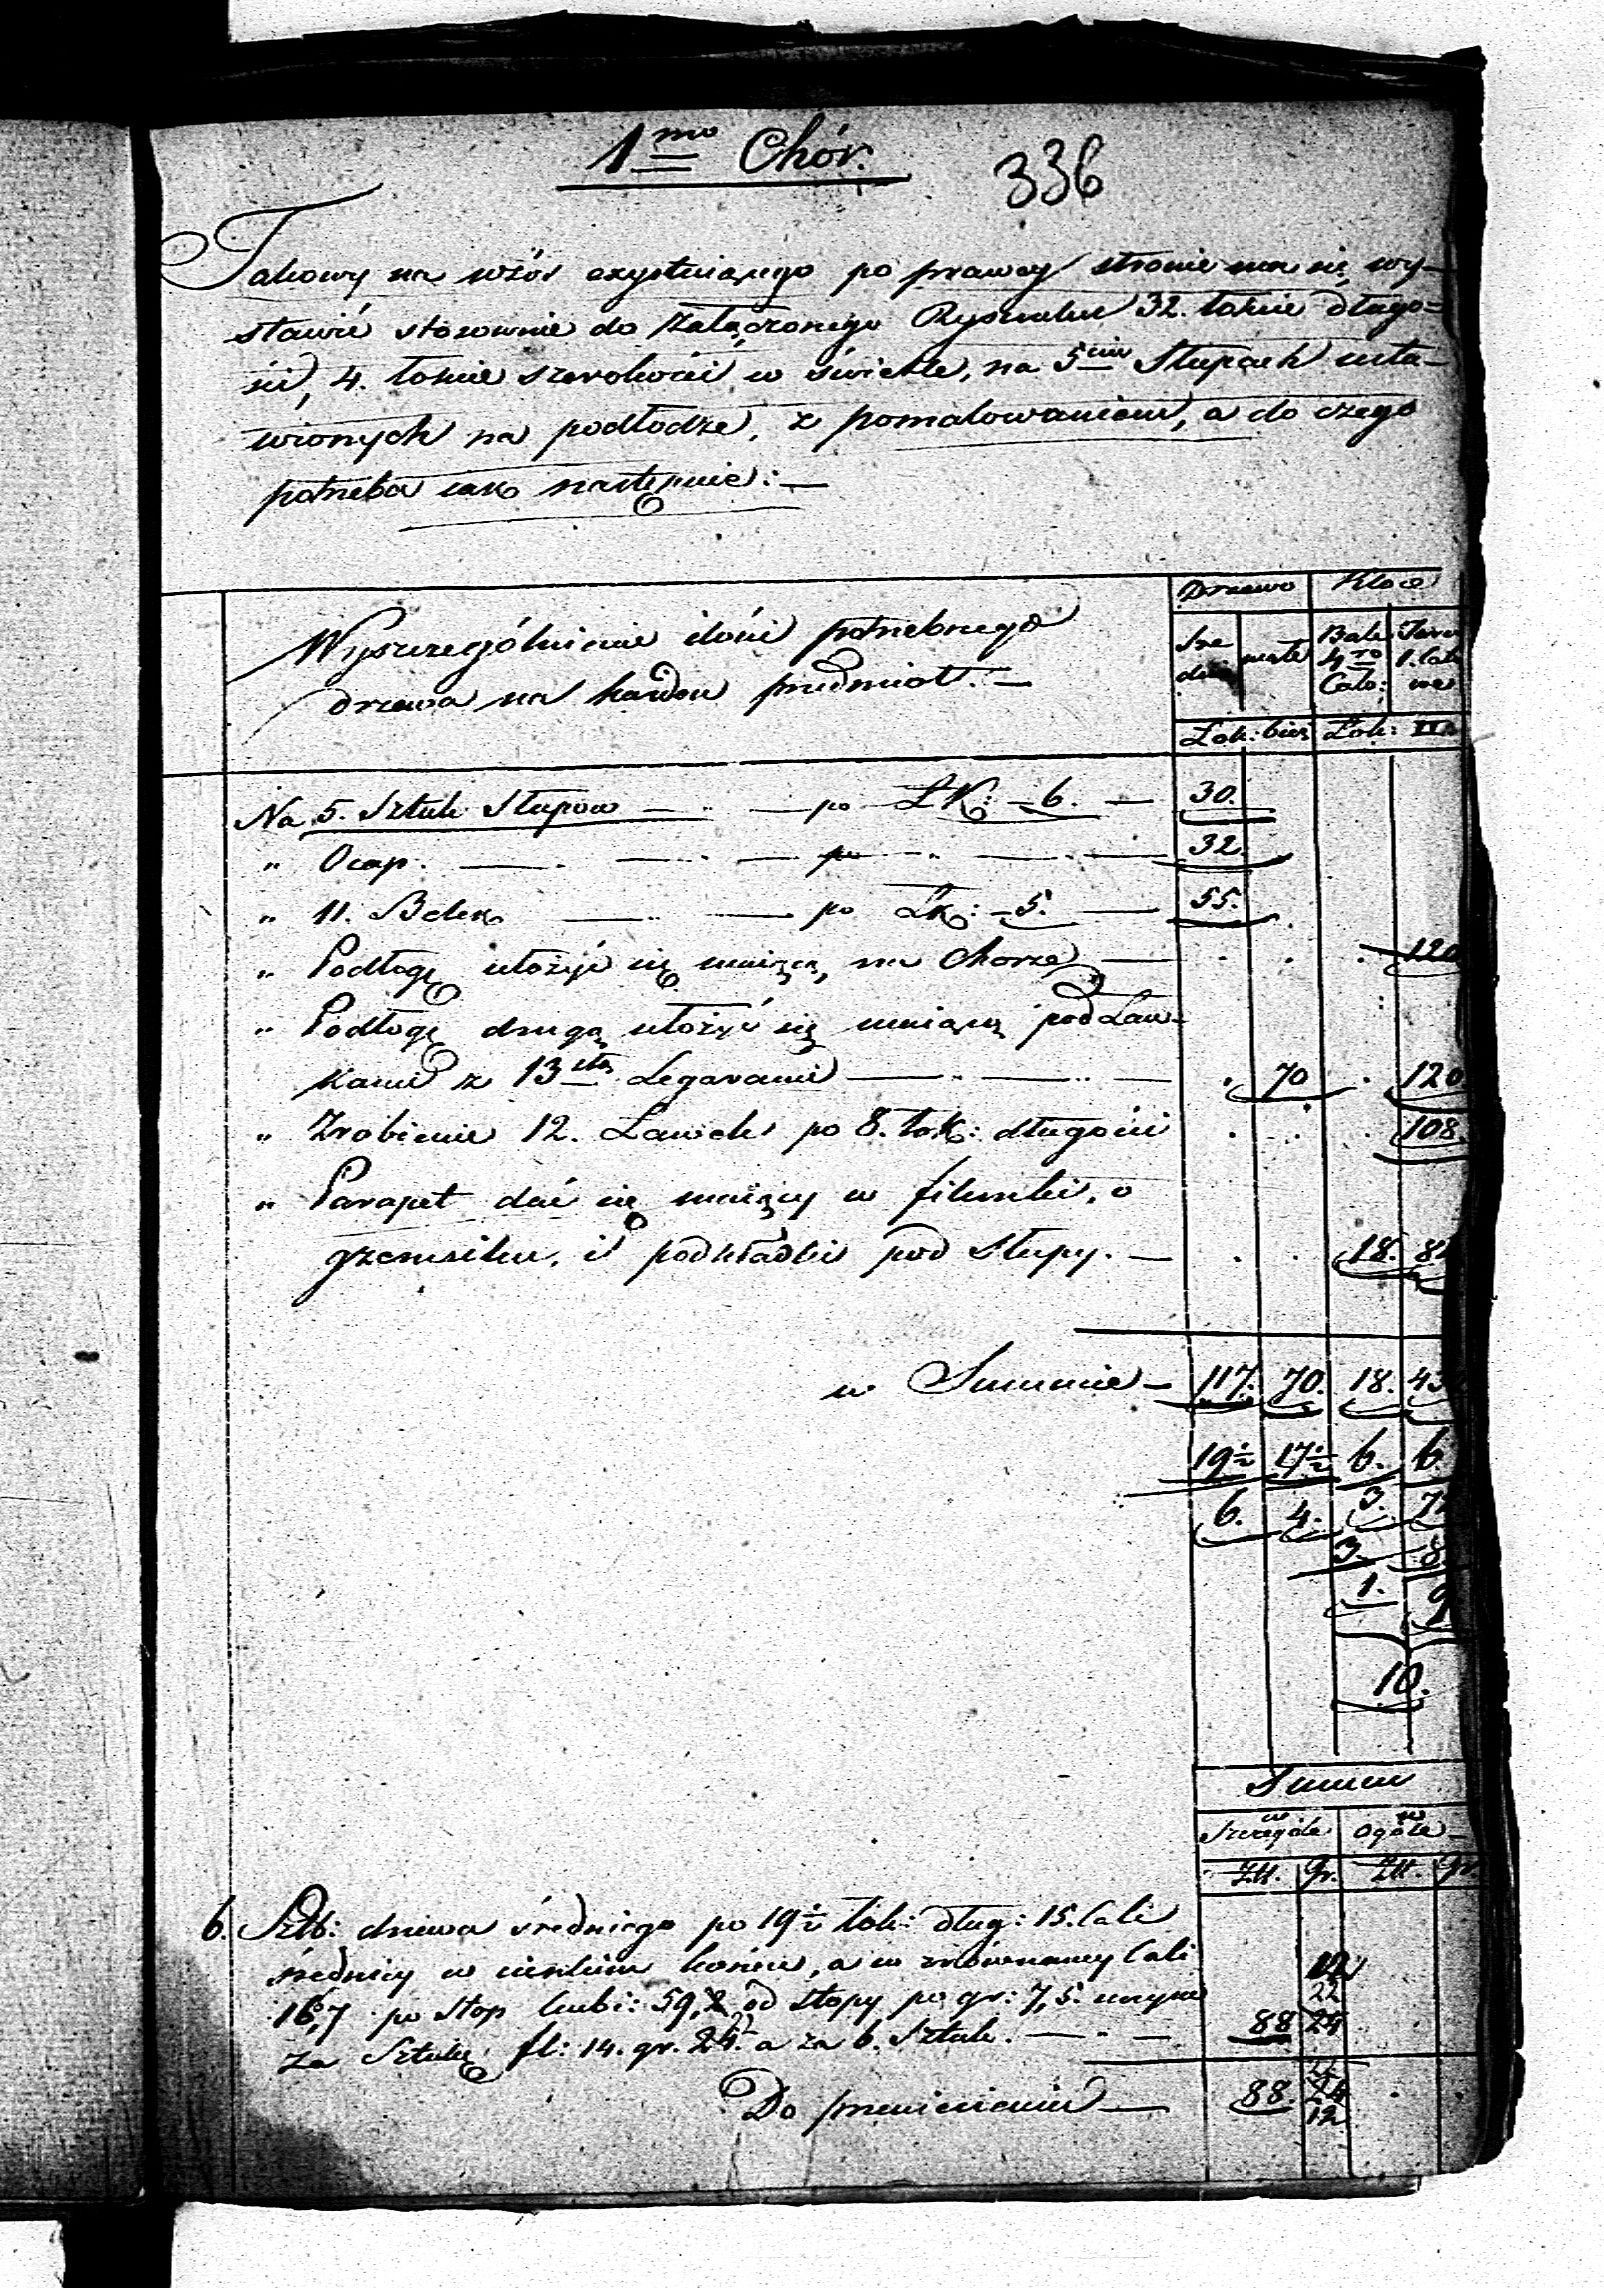 1mo Chór.
336
Takowy na wzór exystuiącego po prawey stronie ma się wy-
stawić stósownie do załączonego Rysunku 32. łokcie długo=
ści, 4. łokcie szerokości w świetle, na 5ciu Słupach usta-
wionych na podłodze, z pomalowaniem, a do czego
potrzeba iako następuie: —
Drzewo Kloce
Wyszczególnienie ilości potrzebnego
drzewa na każden przedmiot. —
Sre
dnie małe Bale
4ro
Calo: Tarc
1. calo
we
Łok: bież Łok: □
Na 5. Sztuk Słupow — " — po ŁK: — 6. — 30.
" Ocap. — " — " — po — " — 32.
" 11. Belek — " — po Łk: — 5. — 55.
" Podłogę ułożyć się maiącą, na Chorze — . . . 120
" Podłogę drugą ułożyć się maiącą pod Ław-
kami z 13stą Legarami — " — " — . 70 . 120
" Zrobienie 12. Ławek po 8. łok: długości . . . 108.
" Parapet dać się maiący w filunki, o
gzemsiku, i podkładki pod Słupy. — . . 18. 8
w Summie — 117. 70. 18. 43
19½ 17½ 6. 6
6. 4. 3. 7
3. 8
1. 9
10.
Summa
w
Szczególe w
Ogóle
Złł. Gr. Złł. Gr.
6. Sztb: drzewa średniego po 19½ łok: dług: 15. Cali
średnicy w cieńkim końcu, a w zrównaney Cali
16,7 po Stop kubi: 59,2 od stopy po gr: 7,5. czyni
12
22
za Sztukę fl: 14. gr. 24. a za 6. Sztuk. — " — 88 24
Do przeniesienia — 88. 24
12